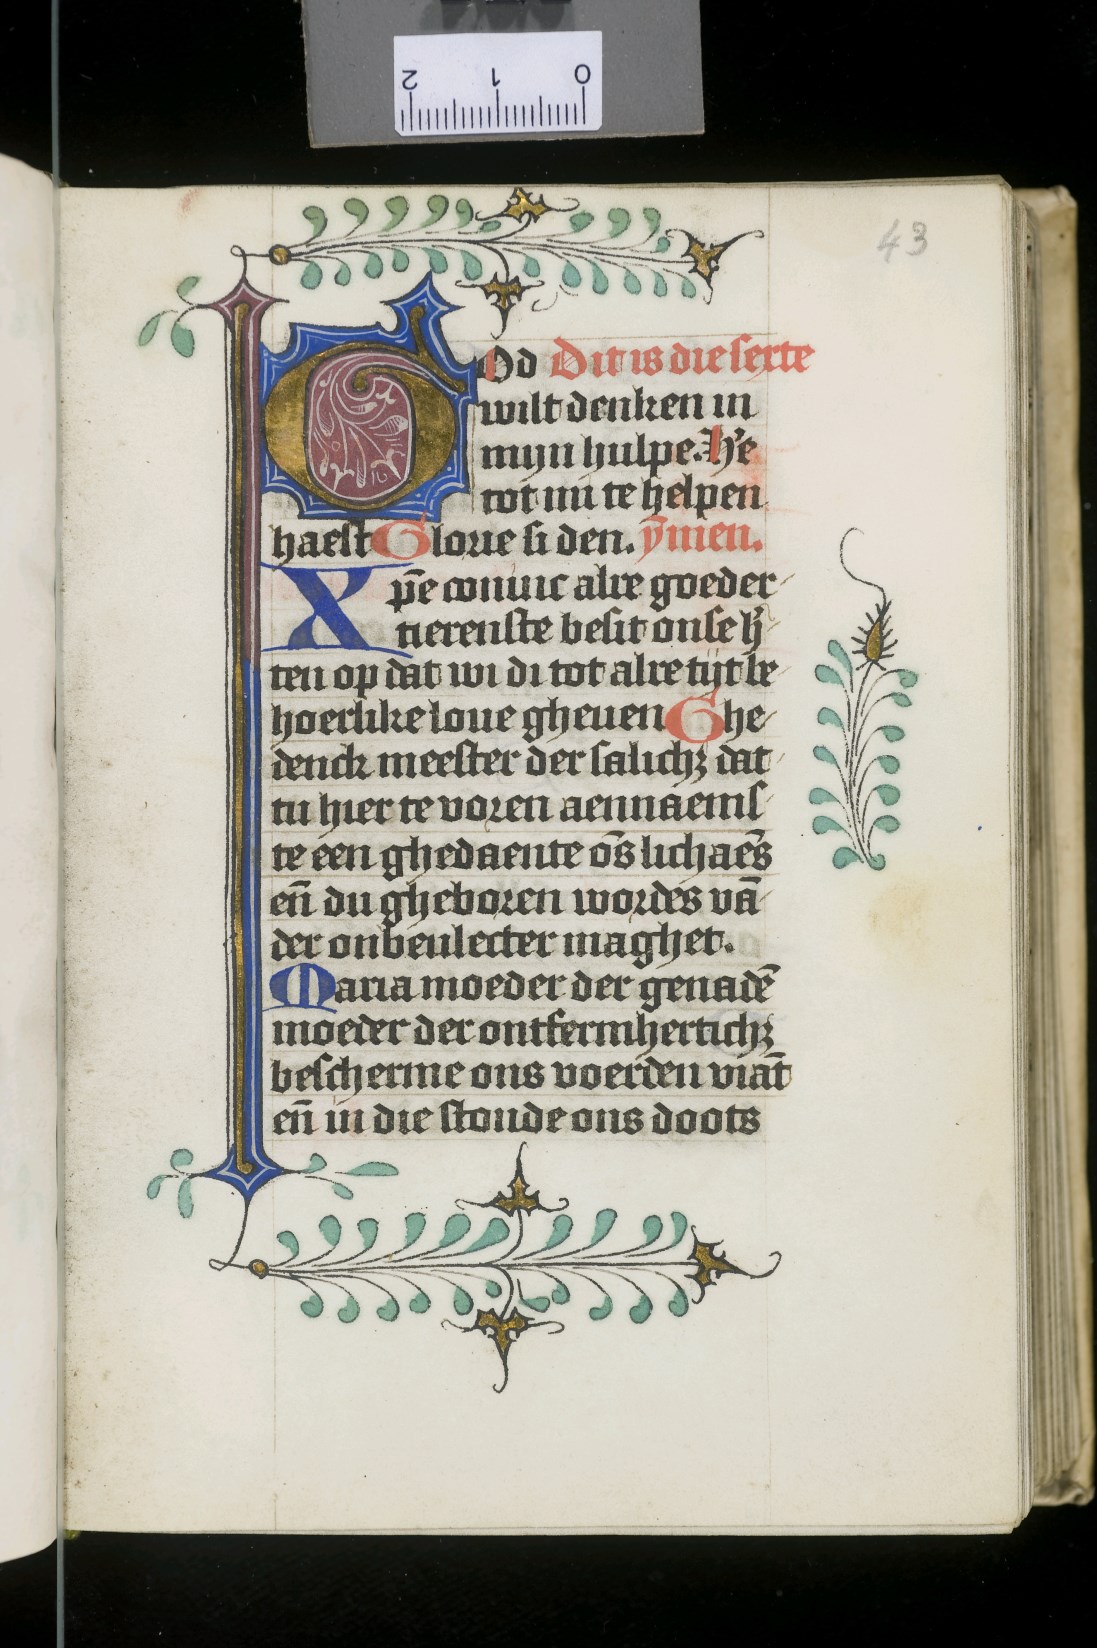 2 1 0
43
God Dit is die sexte
wilt denken in
mijn hulpe. H'e
tot mi te helpen
haest Glorie si den. ȳmen.
Xp̄e comnic alre goeder
tierenste besit onse h'
ten op dat wi di tot alre tijt be
hoerlike loue gheuen Ghe
denck meester der salichꝫ dat
tu hier te voren aennaems
te een ghedaente ōs lichaēs
en̄ du gheboren wordes vā
der onbeulecter maghet.
Maria moeder der genadē
moeder der ontfermhertichꝫ
bescherme ons voerden viāt
en̄ in die stonde ons doots